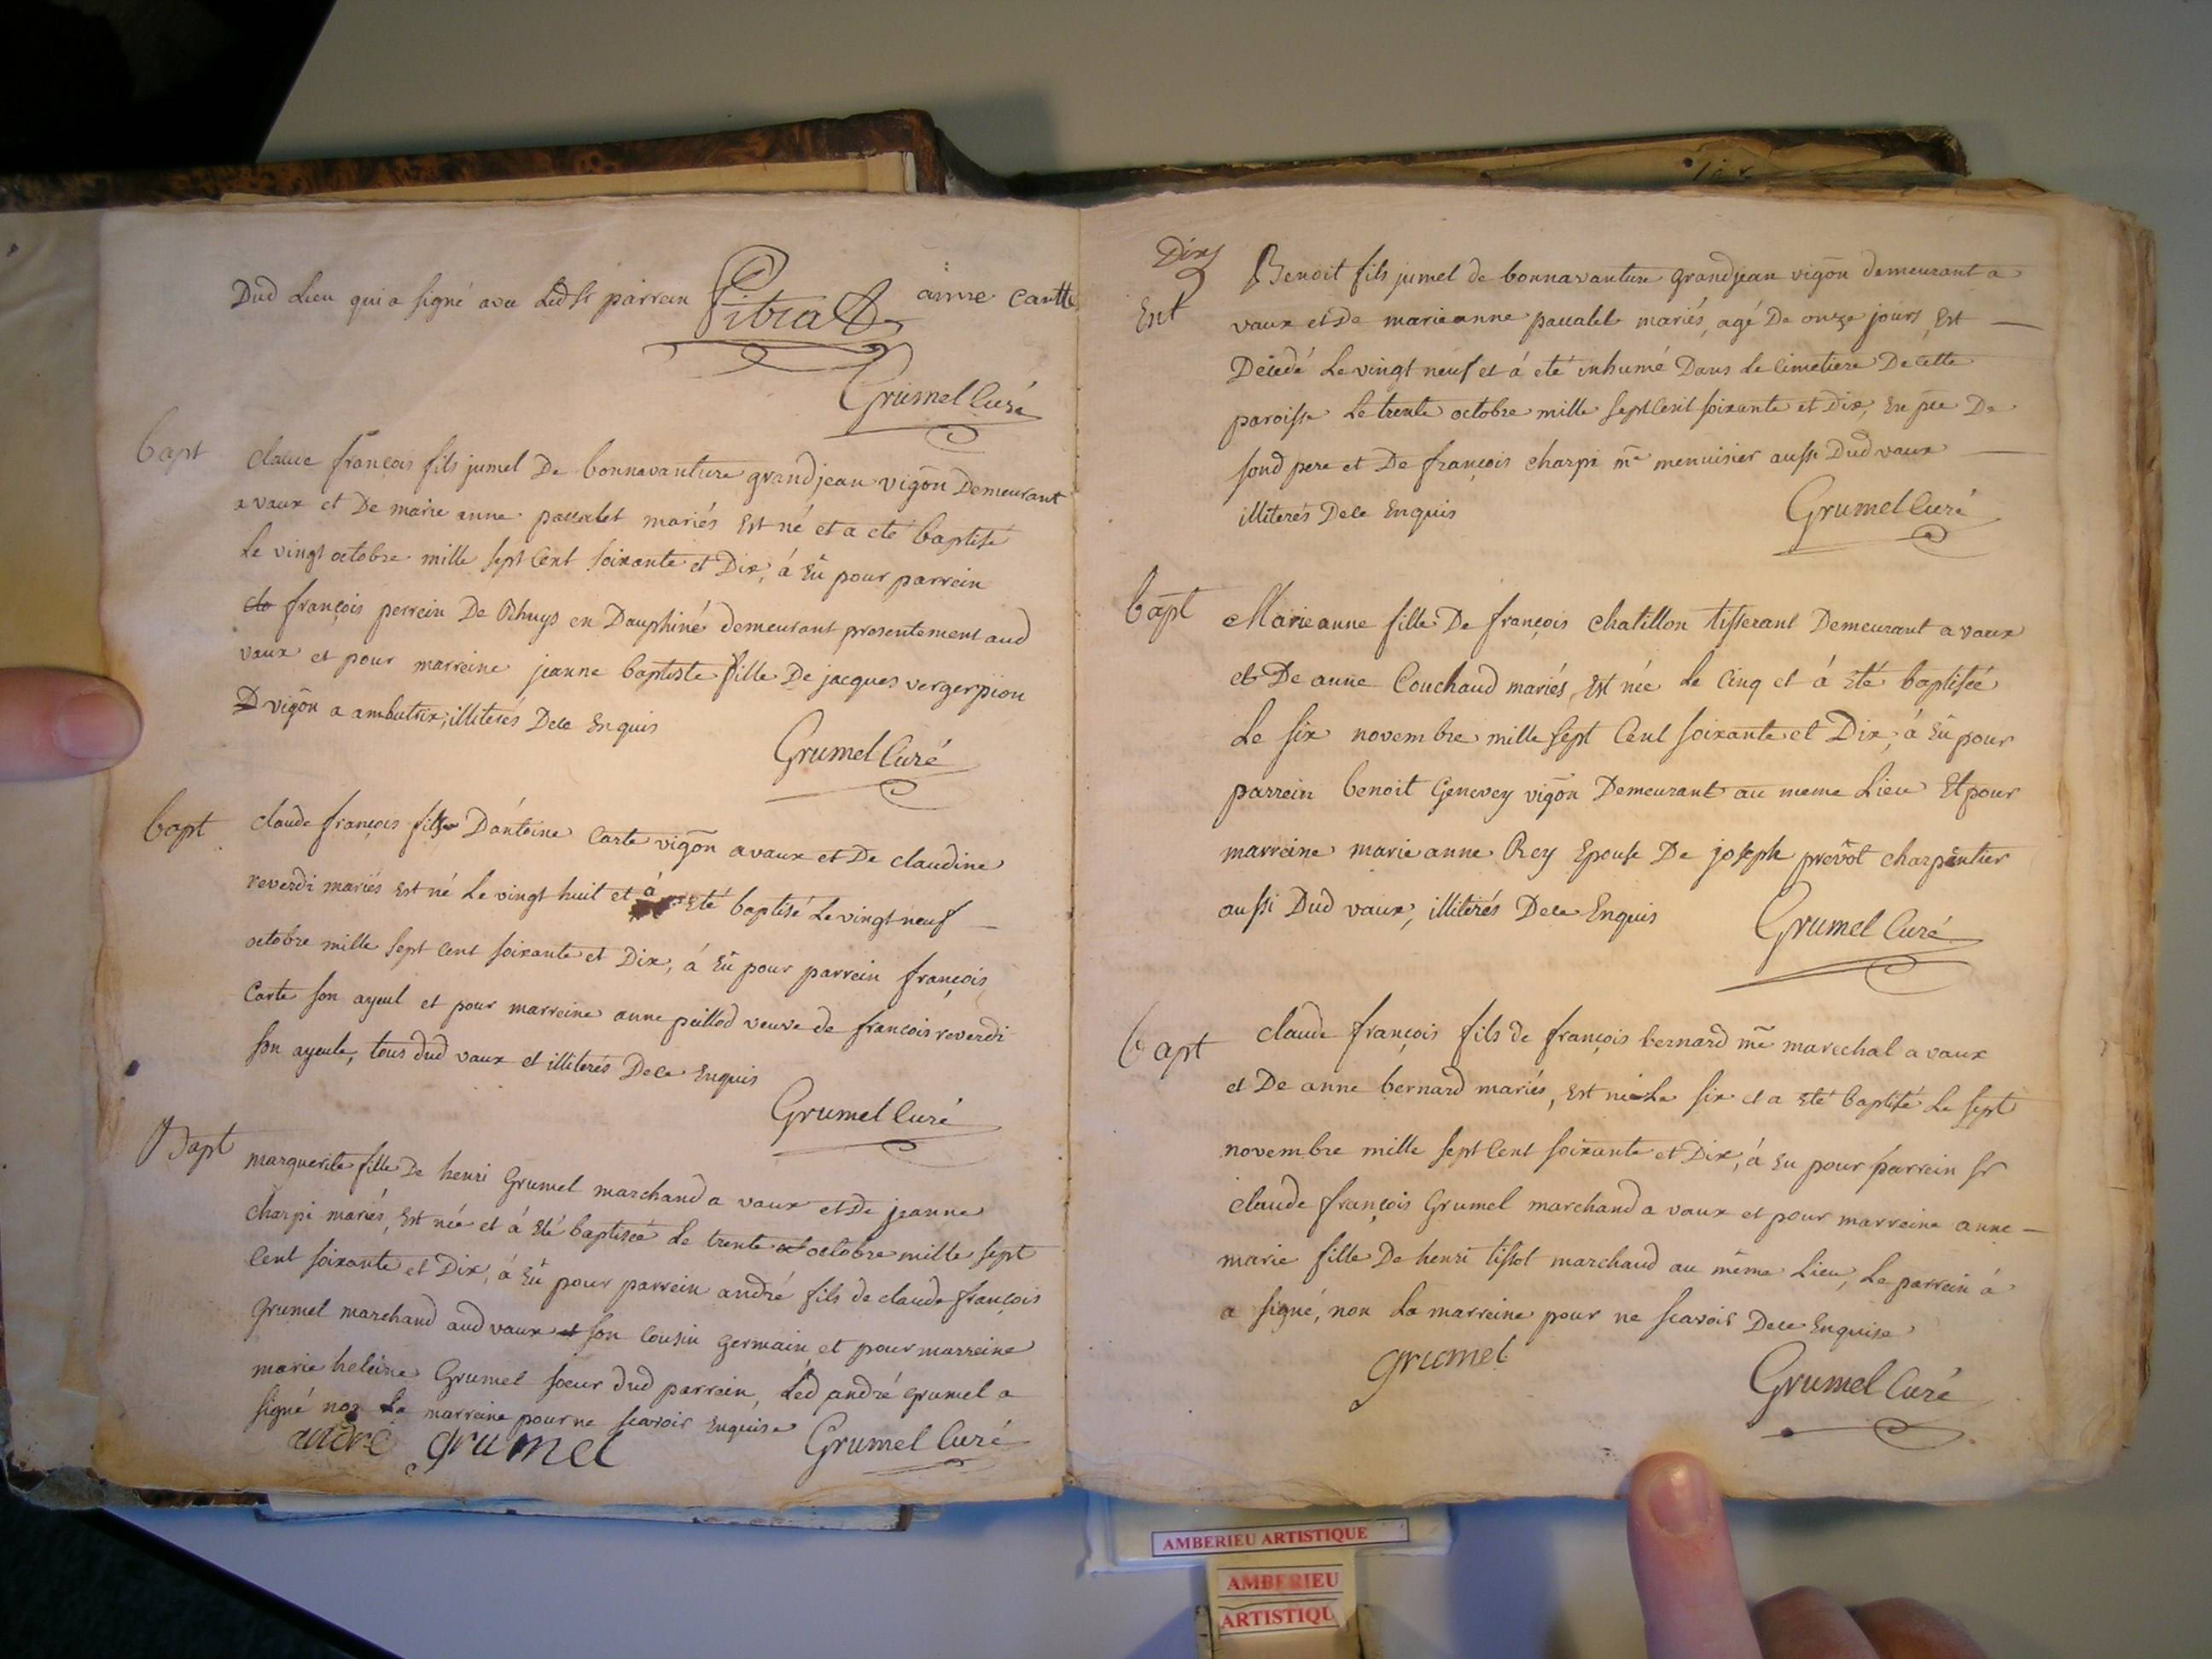 Dud Lieu qui a signé avec Led Sr parrein Pitrat anne Cartte
Grumel Curé
bapt claude françois fils jumel De bonnavanture grandjean vigōn Demeurant
a vaux et De marie anne paccalet mariés Est né et a eté baptisé
Le vingt octobre mille sept Cent soixante et Dix, á Eû pour parrein
françois perrein De en Dauphiné demeurant presentement aud
vaux et pour marreine jeanne baptiste fille De jacques vergerpion
vigōn a ambutrix, illiterés Dece Enquis
Grumel Curé
bapt claude françois fils D'antoine Carte vigōn a vaux et De claudine
reverdi mariés Est né Le vingt huit et á Eté baptisé Le vingt neuf
octobre mille sept Cent soixante et Dix, á Eû pour parrein françois
Carte son ayeul et pour marreine anne peillod veuve de francois reverdi
son ayeule, tous dud vaux et illiterés Dece Enquis
Grumel Curé
Bapt marguerite fille De henri Grumel marchand a vaux et De jeanne
Charpi mariés, Est née et á Eté baptisée Le trente octobre mille sept
Cent soixante et Dix, á Eû pour parrein andré fils de claude françois
Grumel marchand aud vaux son Cousin germain et pour marreine
marie heleine Grumel soeur dud parrein, Led andré grumel a
signé non La marreine pour ne scavoir Enquise
andré grumel Grumel Curé
Dix
Ent Benoit fils jumel de bonnavanture grandjean vigōn demeurant a
vaux et De marieanne paccalet mariés, agé De onze jours, Est
Décedé Le vingt neuf et á eté inhumé Dans Le Cimetiere De Cette
paroisse Le trente octobre mille sept Cent soixante et Dix, En pce De
sond pere et De françois charpi me menuisier aussi Dud vaux
illiterés Dece Enquis Grumel Curé
bapt Marie anne fille De françois Chatillon tisserant Demeurant a vaux
et De anne Couchaud mariés, Est née Le Cinq et á Eté baptisée
Le six novembre mille sept Cent soixante et Dix, á Eû pour
parrein benoit Genevey vigōn Demeurant au meme Lieu Et pour
marreine marie anne Rey Epouse De joseph prevot charpentier
aussi Dud vaux, illiterés Dece Enquis Grumel Curé
bapt claude françois fils de françois bernard me marechal a vaux
et De anne bernard mariés, Est né Le six et a Eté baptisé Le sept
novembre mille sept Cent soixante et Dix, á Eu pour parrein sr
claude françois Grumel marchand a vaux et pour marreine anne
marie fille De henri tissot marchand au même Lieu, Le parrein á
a signé, non La marreine pour ne scavoir Dece Enquise
grumel Grumel Curé
AMBERIEU ARTISTIQUE
AMBERIEU
ARTISTIQU